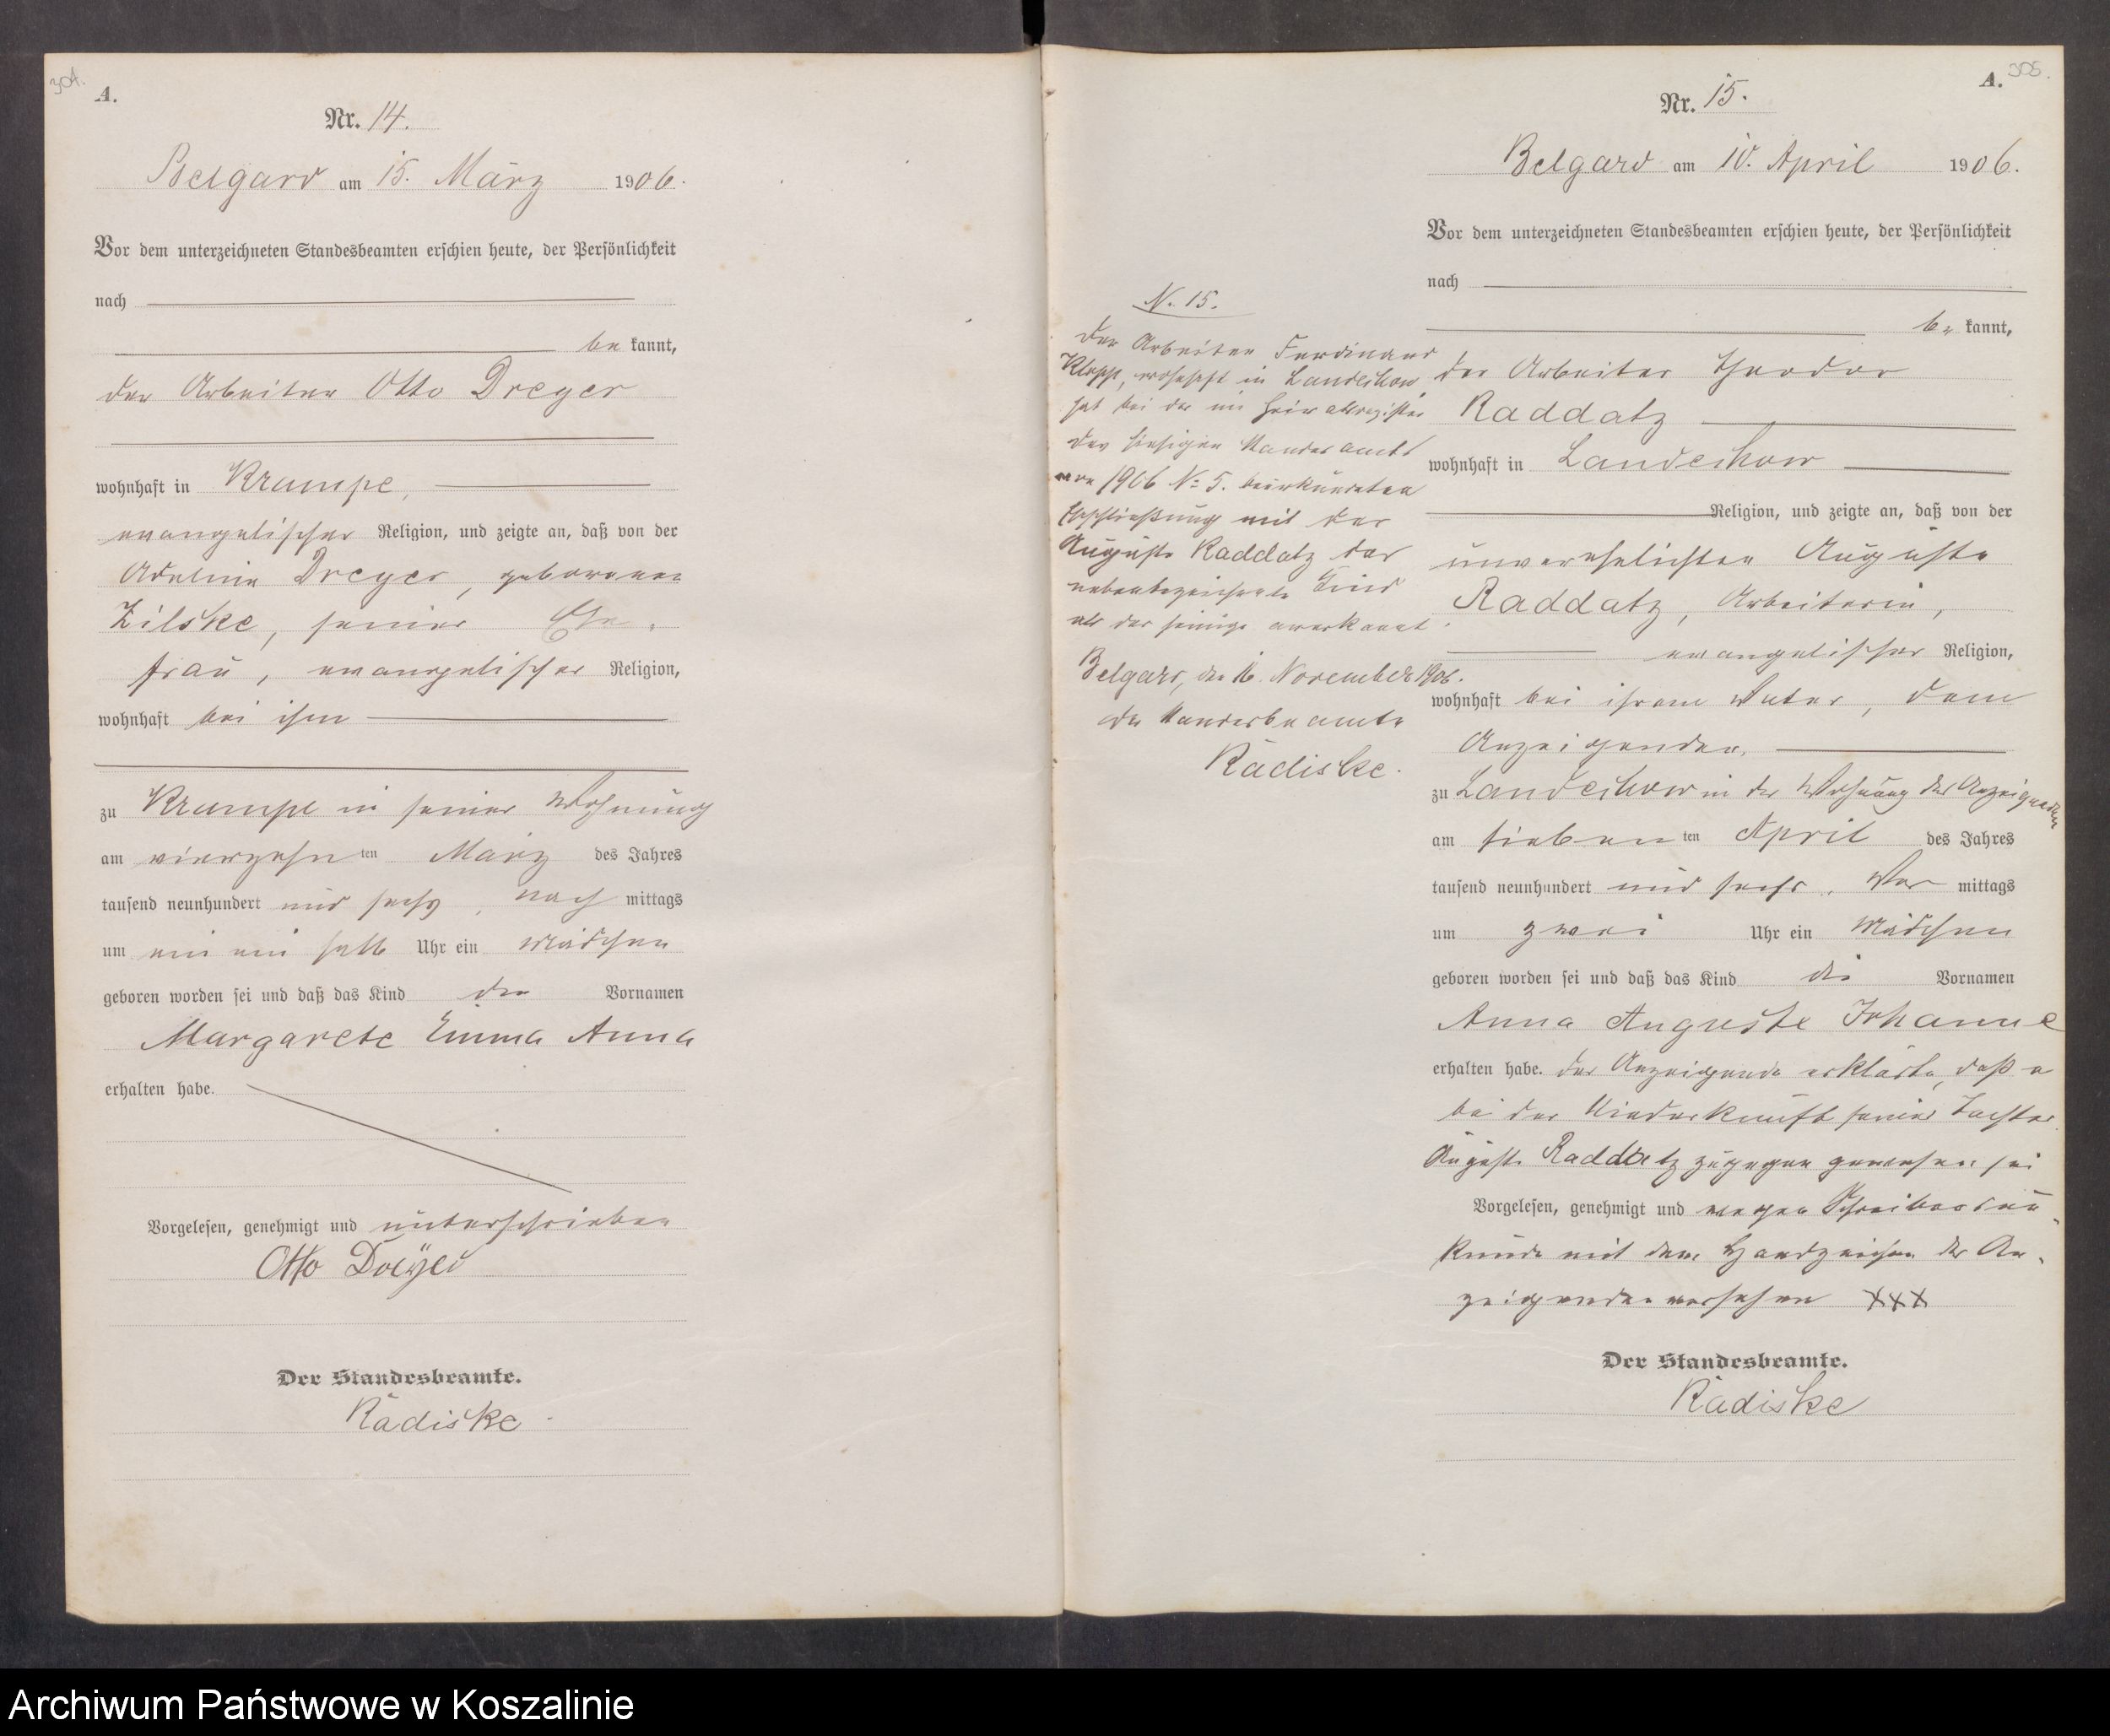 304.
A.
Nr. 14.
Belgard am 15. März 1906.
Vor dem unterzeichneten Standesbeamten erschien heute, der Persönlichkeit
nach
be kannt,
der Arbeiter Otto Dreyer
wohnhaft in Krampe,
evangelischer Religion, und zeigte an, daß von der
Dreyer, geborenen
Zilske, seiner Ehe-
frau, evangelischer Religion,
wohnhaft bei ihm
zu Krampe in seiner Wohnung
am vierzehn ten März des Jahres
tausend neunhundert und sechs, nach mittags
um ein ein halb Uhr ein Mädchen
geboren worden sei und daß das Kind die Vornamen
Margarete Emma Anna
erhalten habe.
Vorgelesen, genehmigt und unterschrieben
Otto Dreÿer
Der Standesbeamte.
Radiske.
305.
A.
Nr. 15.
Belgard am 10. April 1906.
Vor dem unterzeichneten Standesbeamten erschien heute, der Persönlichkeit
nach
be kannt,
der Arbeiter Theodor
Raddatz
wohnhaft in Landechow
Religion, und zeigte an, daß von der
unverehelichten Auguste
Raddatz, Arbeiterin,
evangelischer Religion,
wohnhaft bei ihrem Vater, dem
Anzeigenden,
zu Landechow in der Wohnung des Anzeigenden
am sieben ten April des Jahres
tausend neunhundert und sechs, Vor mittags
um zwei Uhr ein Mädchen
geboren worden sei und daß das Kind die Vornamen
Anna Auguste Johanne
erhalten habe. Der Anzeigende erklärte, daß er
bei der Niederkunft seiner Tochter
Auguste Raddatz zugegen gewesen sei
Vorgelesen, genehmigt und wegen Schreibensun-
kunde mit dem Handzeichen des An-
zeigenden versehen XXX
Der Standesbeamte.
Radiske
N. 15.
Der Arbeiter Ferdinand
wohnhaft in Landechow
hat bei der im Heiratsregister
des hiesigen Standesamts
von 1906 No 5. beurkundeten
Eheschließung mit der
Auguste Raddatz das
nebenbezeichnete Kind
als das seinige anerkannt.
Belgard, den 16. November 1906.
Der Standesbeamte
Radiske.
Archiwum Państwowe w Koszalinie